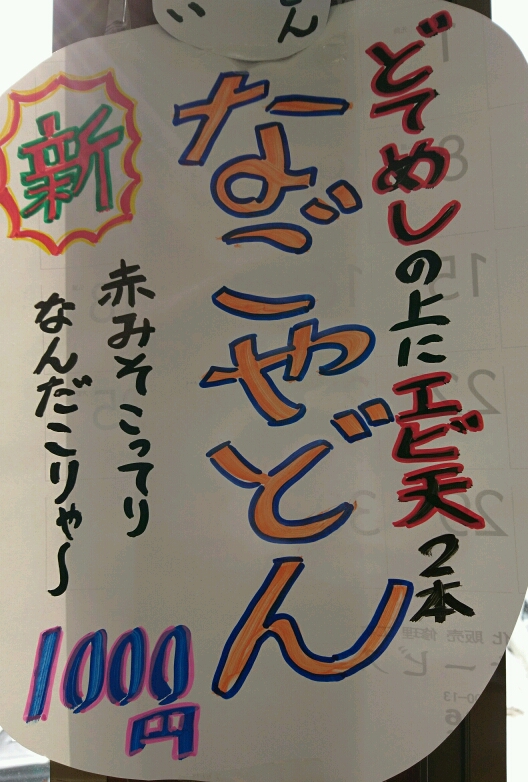 どてめしの上にエビ天2本
なごやどん
新
赤みそこってり
なんだこりゃ～
1000円